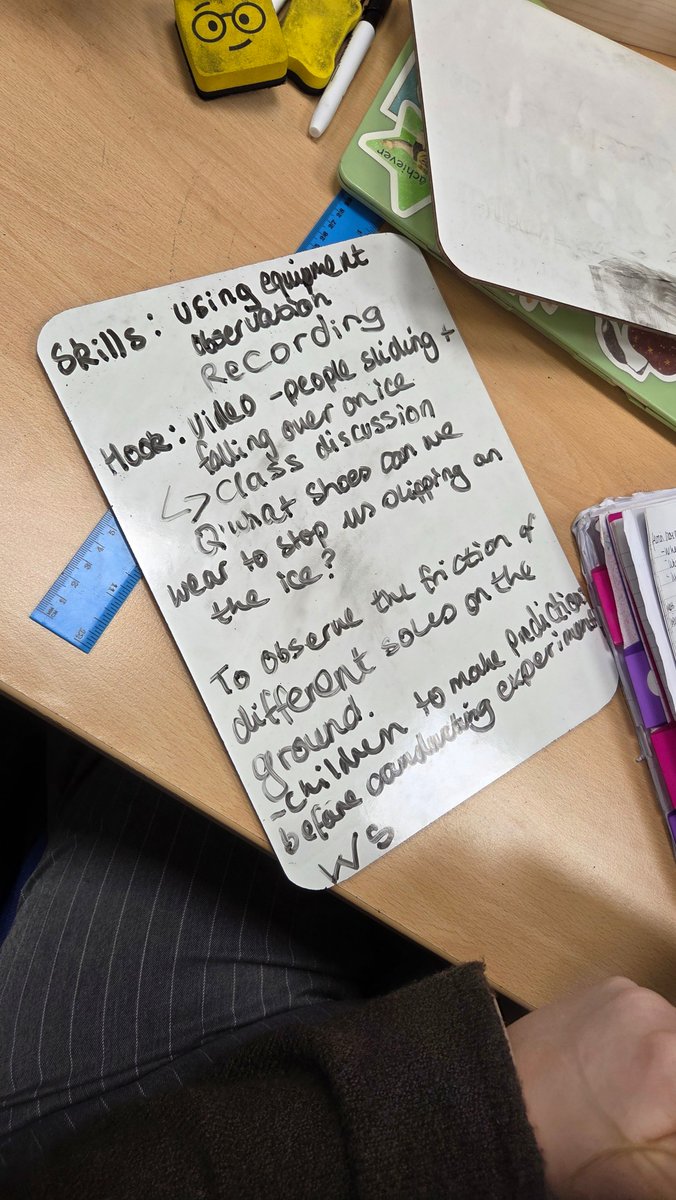 Skills: Using equipment
observation
Recording
Hook: Video - people sliding +
falling over on ice
↳ Class discussion
Q: what shoes can we
wear to stop us slipping on
the ice?
To observe the friction of
different soles on the
ground.
- Children to make predictions
before conducting experiment
WS
achiever